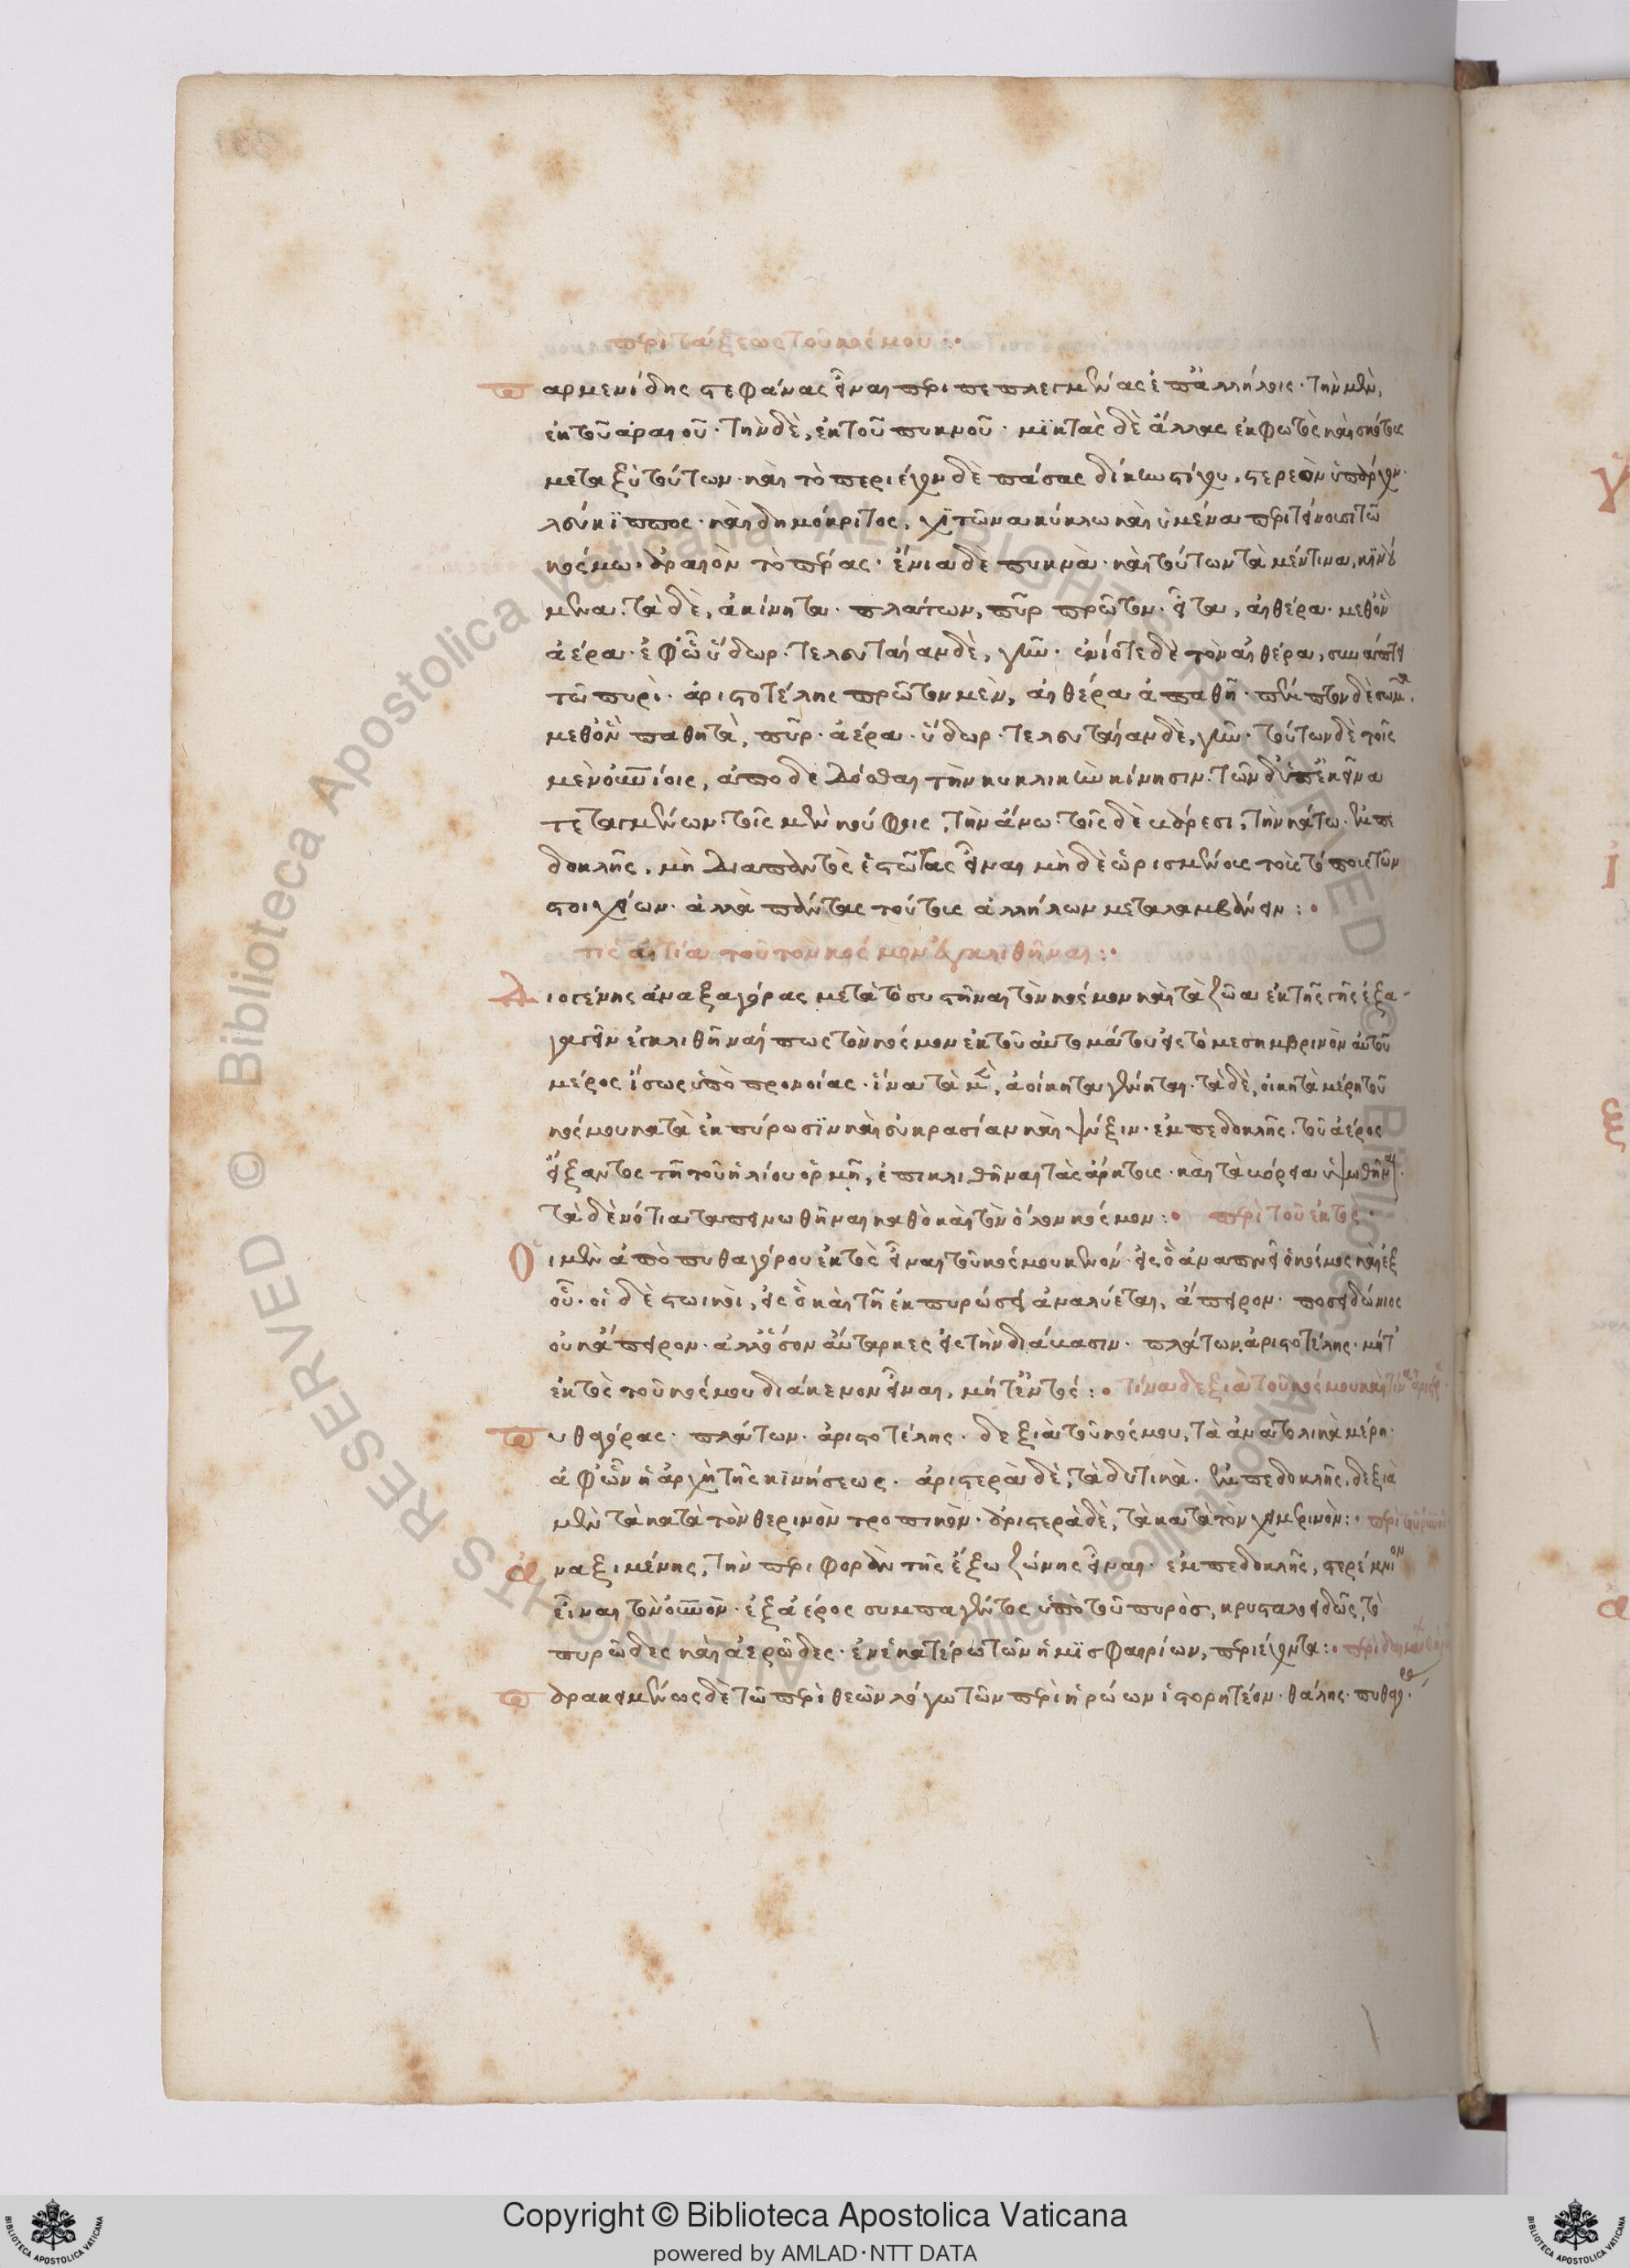 περὶ τάξεως τοῦ κόσμου :·
Παρμενίδης στεφάνας εἶναι περιπεπλεγμένας ἐπαλλήλοις · τὴν μὲν,
ἐκ τοῦ ἀραιοῦ · τὴν δὲ, ἐκ τοῦ πυκνοῦ · μϊκτὰς δὲ ἄλλας ἐκ φωτὸς καὶ σκότους
μεταξὺ τούτων · καὶ τὸ περιέχον δὲ πάσας δίκην τείχου, στερεὸν ὑπάρχειν ·
λεύκϊππος · καὶ δημόκριτος, χιτῶνα κύκλω καὶ ὑμένα περιτείνουσι τῶ
κόσμω · ἀραιὸν τὸ πέρας · ἔνια δὲ πυκνὰ · καὶ τούτων τὰ μέν τινα, κϊνού
μενα · τὰ δὲ, ἀκίνητα · πλάτων, πῦρ πρῶτον · εἶτα, αἰθέρα · μεθ' ὃν
ἀέρα · ἐφ' ὧ ὕδωρ · τελευταίαν δὲ, γῆν · ἐνίοτε δὲ τὸν αἰθέρα, συνάπτει
τῶ πυρὶ · ἀριστοτέλης πρῶτον μὲν, αἰθέρα ἀπαθῆ · πέμπτον δὲ σῶμα ·
μεθ' ὃν παθητὰ, πῦρ · ἀέρα · ὕδωρ · τελευταίαν δὲ, γῆν · τούτων δὲ τοῖς
μὲν οὐνίοις, ἀποδεδόσθαι τὴν κυκλικὴν κίνησιν · τῶν δ' ὑπ' ἐκεῖνα
τεταγμένων · τοῖς μὲν κούφοις, τὴν ἄνω · τοῖς δὲ βάρεσι, τὴν κάτω · ἐμπε
δοκλῆς, μὴ διαπαντὸς ἑστῶτας εἶναι μὴ δὲ ὡρισμένους τοὺς τόπους τῶν
στοιχείων · ἀλλὰ πάντας τούτους ἀλλήλων μεταλαμβάνειν : ·
τίς αἰτία τοῦ τὸν κόσμον ἐγκλιθῆναι : ·
Διογένης ἀναξαγόρας μετὰ τὸ συστῆναι τὸν κόσμον καὶ τὰ ζῶα ἐκ τῆς γῆς ἐξα-
γαγεῖν ἐγκλιθῆναί πως τὸν κόσμον ἐκ τοῦ αὐτομάτου εἰς τὸ μεσημβρινὸν αὐτοῦ
μέρος ἴσως ὑπὸ προνοίας · ἵνα τὰ μὲν, ἀοίκητα γένηται · τὰ δὲ, οἰκητὰ μέρη τοῦ
κόσμου κατὰ ἐκπύρωσϊν καὶ εὐκρασίαν καὶ ψύξιν · ἐμπεδοκλῆς · τοῦ ἀέρος
εἴξαντος τῆ τοῦ ἡλίου ὁρμῆ, ἐπικλιθῆναι τὰς ἄρκτους · καὶ τὰ βόρεια ὑψωθῆναι ·
τὰ δὲ νότια ταπεινωθῆναι καθὸ καὶ τὸν ὅλον κόσμον : · περὶ τοῦ ἐκτὸς ·
Οἱ μὲν ἀπὸ πυθαγόρου ἐκτὸς εἶναι τοῦ κόσμου κενόν · εἰς ὃ ἀναπνεῖ ὁ κόσμος καὶ ἐξ
οὗ · οἱ δὲ στωικοὶ, εἰς ὃ καὶ τῆ ἐκπυρώσει ἀναλύεται, ἄπειρον · ποσειδώνιος
οὐκ ἄπειρον · ἀλλ' ὅσον αὔταρκες εἰς τὴν διάβασιν · πλάτων, ἀριστοτέλης · μήτ'
ἐκτὸς τοῦ κόσμου διάκενον εἶναι, μήτ' ἐντός : · τίνα δεξιὰ τοῦ κόσμου καὶ τίνα ἀριστερ
Πυθαγόρας · πλάτων · ἀριστοτέλης · δεξιὰ τοῦ κόσμου, τὰ ἀνατολικὰ μέρη ·
ἀφ' ὧν ἡ ἀρχὴ τῆς κϊνήσεως · ἀριστερὰ δὲ, τὰ δυτικὰ · ἐμπεδοκλῆς, δεξιὰ
μὲν τὰ κατὰ τὸν θερινὸν τροπικὸν · ἀριστερὰ δὲ, τὰ κατὰ τὸν χειμερινὸν : · περὶ
ἀναξιμένης, τὴν περιφορὰν τῆς ἔξω ζώνης εἶναι · ἐμπεδοκλῆς, στερέμνιον
εἶναι τὸν οὐνὸν · ἐξ ἀέρος συμπαγέντος ὑπὸ τοῦ πυρὸς, κρυσταλοειδῶς, τὸ
πυρῶδες καὶ ἀερῶδες · ἐν ἑκατέρω τῶν ἡμϊσφαιρίων, περιέχοντα : · περὶ δαιμόνων
Παρακειμένως δὲ τῶ περὶ θεῶν λόγω τῶν περὶ ἡρώων ἱστορητέον · θαλῆς · πυθαγόρ